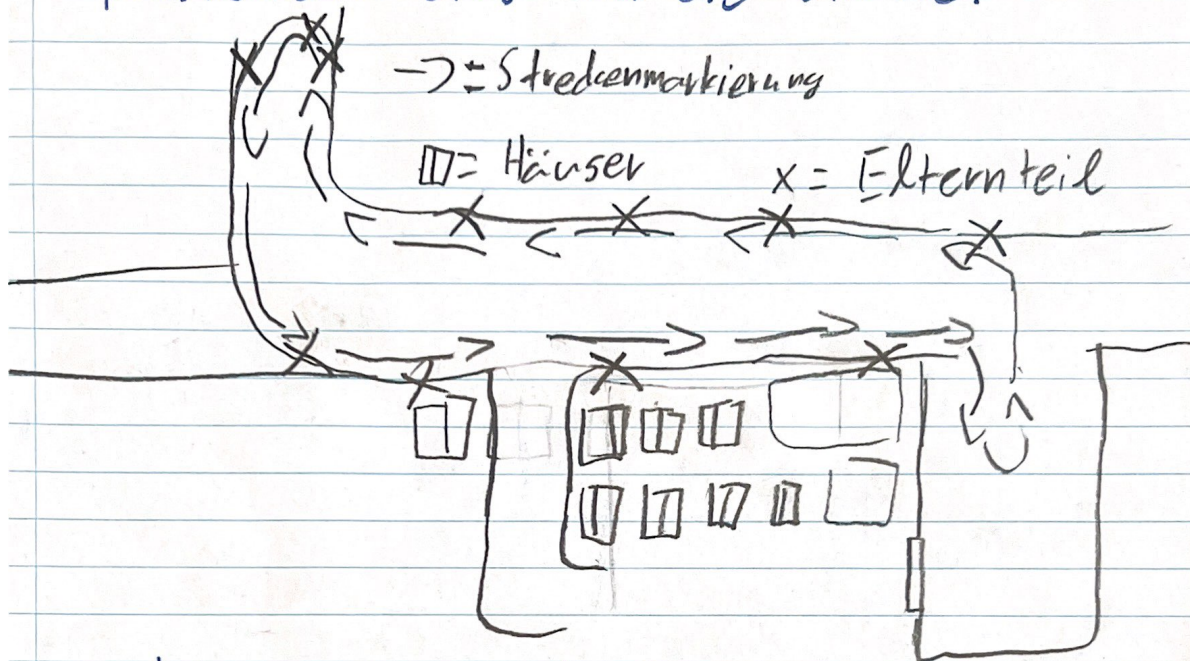 -> = Streckenmarkierung
= Häuser
x = Elternteil